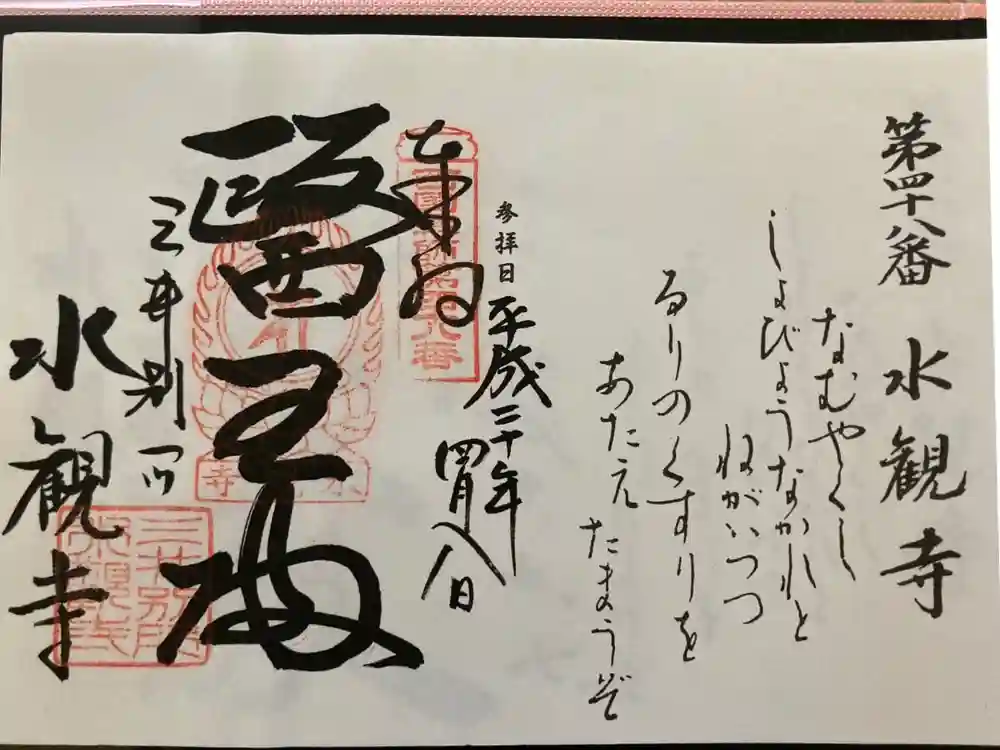 第四十八番 水観寺
なむやくし
しょびょうなかれと
ねがいつつ
るりのくすりを
あたえ たまうぞ
参拝日 平成二十年
四月八日
奉拝
西國薬師第四十八番
醫王殿
三井別所
水観寺
水観寺
三井別所
水観寺